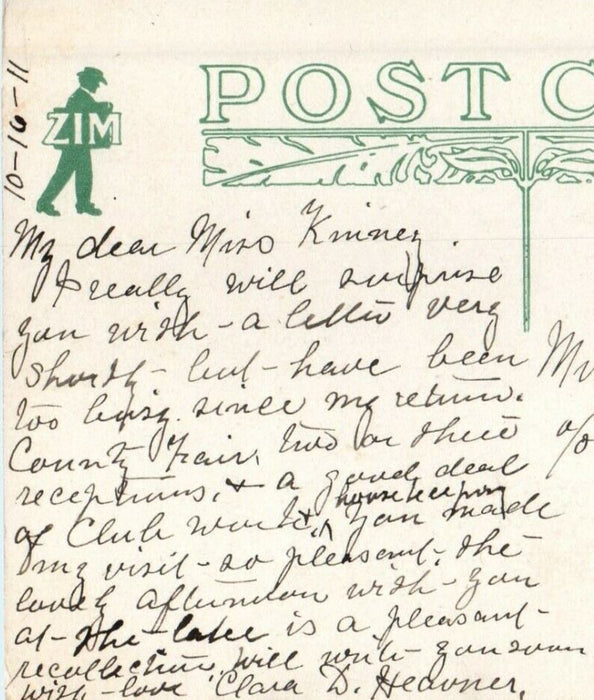 10-16-11
ZIM
POST C
My dear Miss Kinney.
I really will surprise
you with - a letter very
shortly - but - have been
too busy since my return.
County Fair, two or three
receptions, & a good deal
housekeeping
of Club work & you made
my visit - so pleasant. the
lovely afternoon with - you
at - the - lake is a pleasant -
recollection, will write you soon
with - love Clara D. Heavner.
c/o